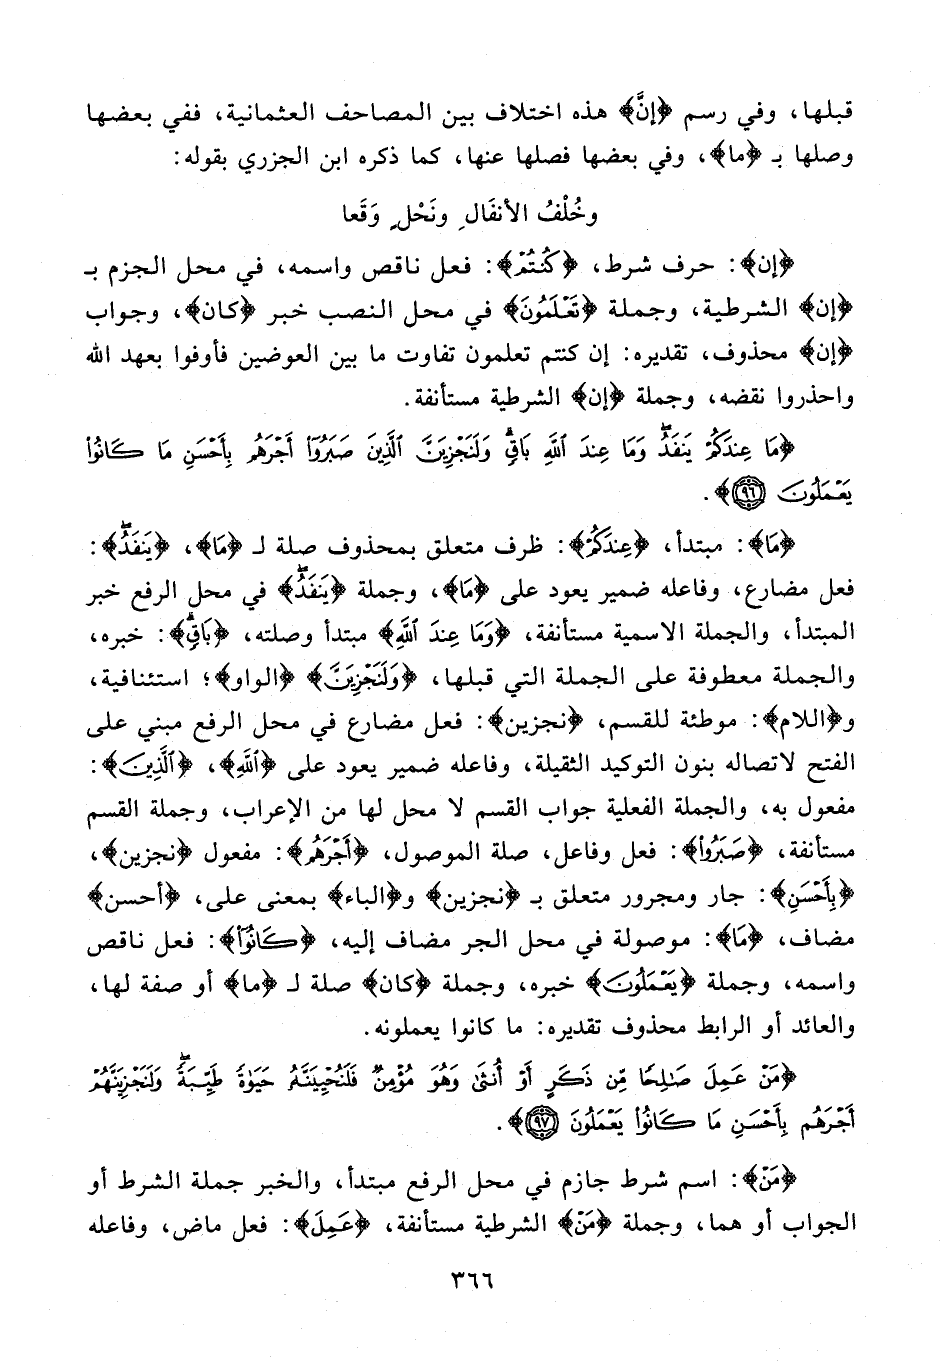 قبلها، وفي رسم ﴿إنَّ﴾ هذه اختلاف بين المصاحف العثمانية، ففي بعضها
وصلها بـ ﴿ما﴾، وفي بعضها فصلها عنها، كما ذكره ابن الجزري بقوله:
وخُلْفُ الأنفَالِ ونَحْلٍ وَقَعا
﴿إن﴾: حرف شرط، ﴿كُنتُمْ﴾: فعل ناقص واسمه، في محل الجزم بـ
﴿إن﴾ الشرطية، وجملة ﴿تَعْلَمُونَ﴾ في محل النصب خبر ﴿كان﴾، وجواب
﴿إن﴾ محذوف، تقديره: إن كنتم تعلمون تفاوت ما بين العوضين فأوفوا بعهد الله
واحذروا نقضه، وجملة ﴿إن﴾ الشرطية مستأنفة.
﴿مَا عِندَكُمْ يَنفَدُ ۖ وَمَا عِندَ ٱللَّهِ بَاقٍ ۗ وَلَنَجْزِيَنَّ ٱلَّذِينَ صَبَرُوٓا۟ أَجْرَهُم بِأَحْسَنِ مَا كَانُوا۟
يَعْمَلُونَ ٩٦﴾.
﴿مَا﴾: مبتدأ، ﴿عِندَكُمْ﴾: ظرف متعلق بمحذوف صلة لـ ﴿مَا﴾، ﴿يَنفَدُ ۖ﴾:
فعل مضارع، وفاعله ضمير يعود على ﴿مَا﴾، وجملة ﴿يَنفَدُ ۖ﴾ في محل الرفع خبر
المبتدأ، والجملة الاسمية مستأنفة، ﴿وَمَا عِندَ ٱللَّهِ﴾ مبتدأ وصلته، ﴿بَاقٍ ۗ﴾: خبره،
والجملة معطوفة على الجملة التي قبلها، ﴿وَلَنَجْزِيَنَّ﴾ ﴿الواو﴾؛ استئنافية،
و﴿اللام﴾: موطئة للقسم، ﴿نجزين﴾: فعل مضارع في محل الرفع مبني على
الفتح لاتصاله بنون التوكيد الثقيلة، وفاعله ضمير يعود على ﴿ٱللَّهِ﴾، ﴿ٱلَّذِينَ﴾:
مفعول به، والجملة الفعلية جواب القسم لا محل لها من الإعراب، وجملة القسم
مستأنفة، ﴿صَبَرُوٓا۟﴾: فعل وفاعل، صلة الموصول، ﴿أَجْرَهُم﴾: مفعول ﴿نجزين﴾،
﴿بِأَحْسَنِ﴾: جار ومجرور متعلق بـ ﴿نجزين﴾ و﴿الباء﴾ بمعنى على، ﴿أحسن﴾
مضاف، ﴿مَا﴾: موصولة في محل الجر مضاف إليه، ﴿كَانُوٓا۟﴾: فعل ناقص
واسمه، وجملة ﴿يَعْمَلُونَ﴾ خبره، وجملة ﴿كان﴾ صلة لـ ﴿ما﴾ أو صفة لها،
والعائد أو الرابط محذوف تقديره: ما كانوا يعملونه.
﴿مَنْ عَمِلَ صَٰلِحًا مِّن ذَكَرٍ أَوْ أُنثَىٰ وَهُوَ مُؤْمِنٌ فَلَنُحْيِيَنَّهُۥ حَيَوٰةً طَيِّبَةً ۖ وَلَنَجْزِيَنَّهُمْ
أَجْرَهُم بِأَحْسَنِ مَا كَانُوا۟ يَعْمَلُونَ ٩٧﴾.
﴿مَنْ﴾: اسم شرط جازم في محل الرفع مبتدأ، والخبر جملة الشرط أو
الجواب أو هما، وجملة ﴿مَنْ﴾ الشرطية مستأنفة، ﴿عَمِلَ﴾: فعل ماض، وفاعله
٣٦٦